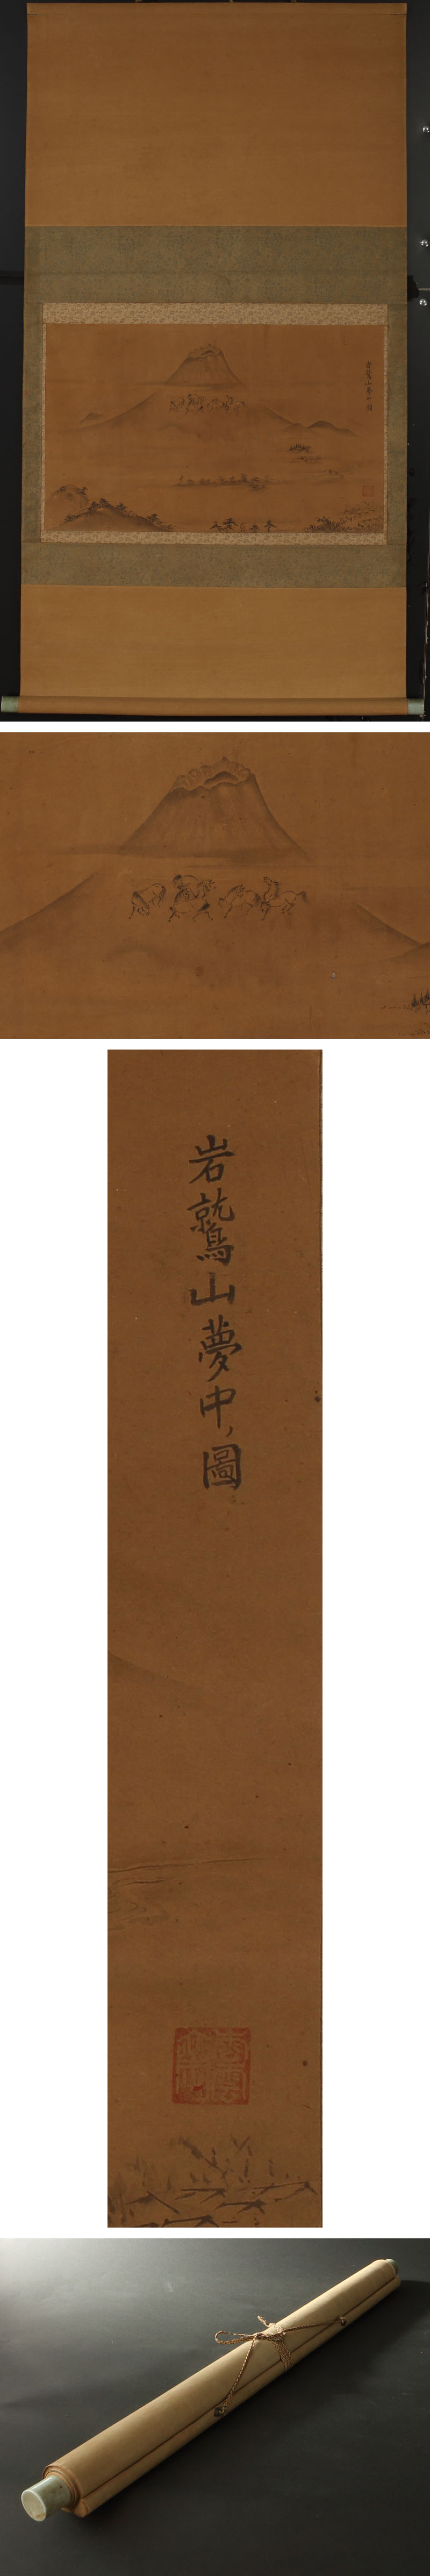 岩鷲山夢中圖